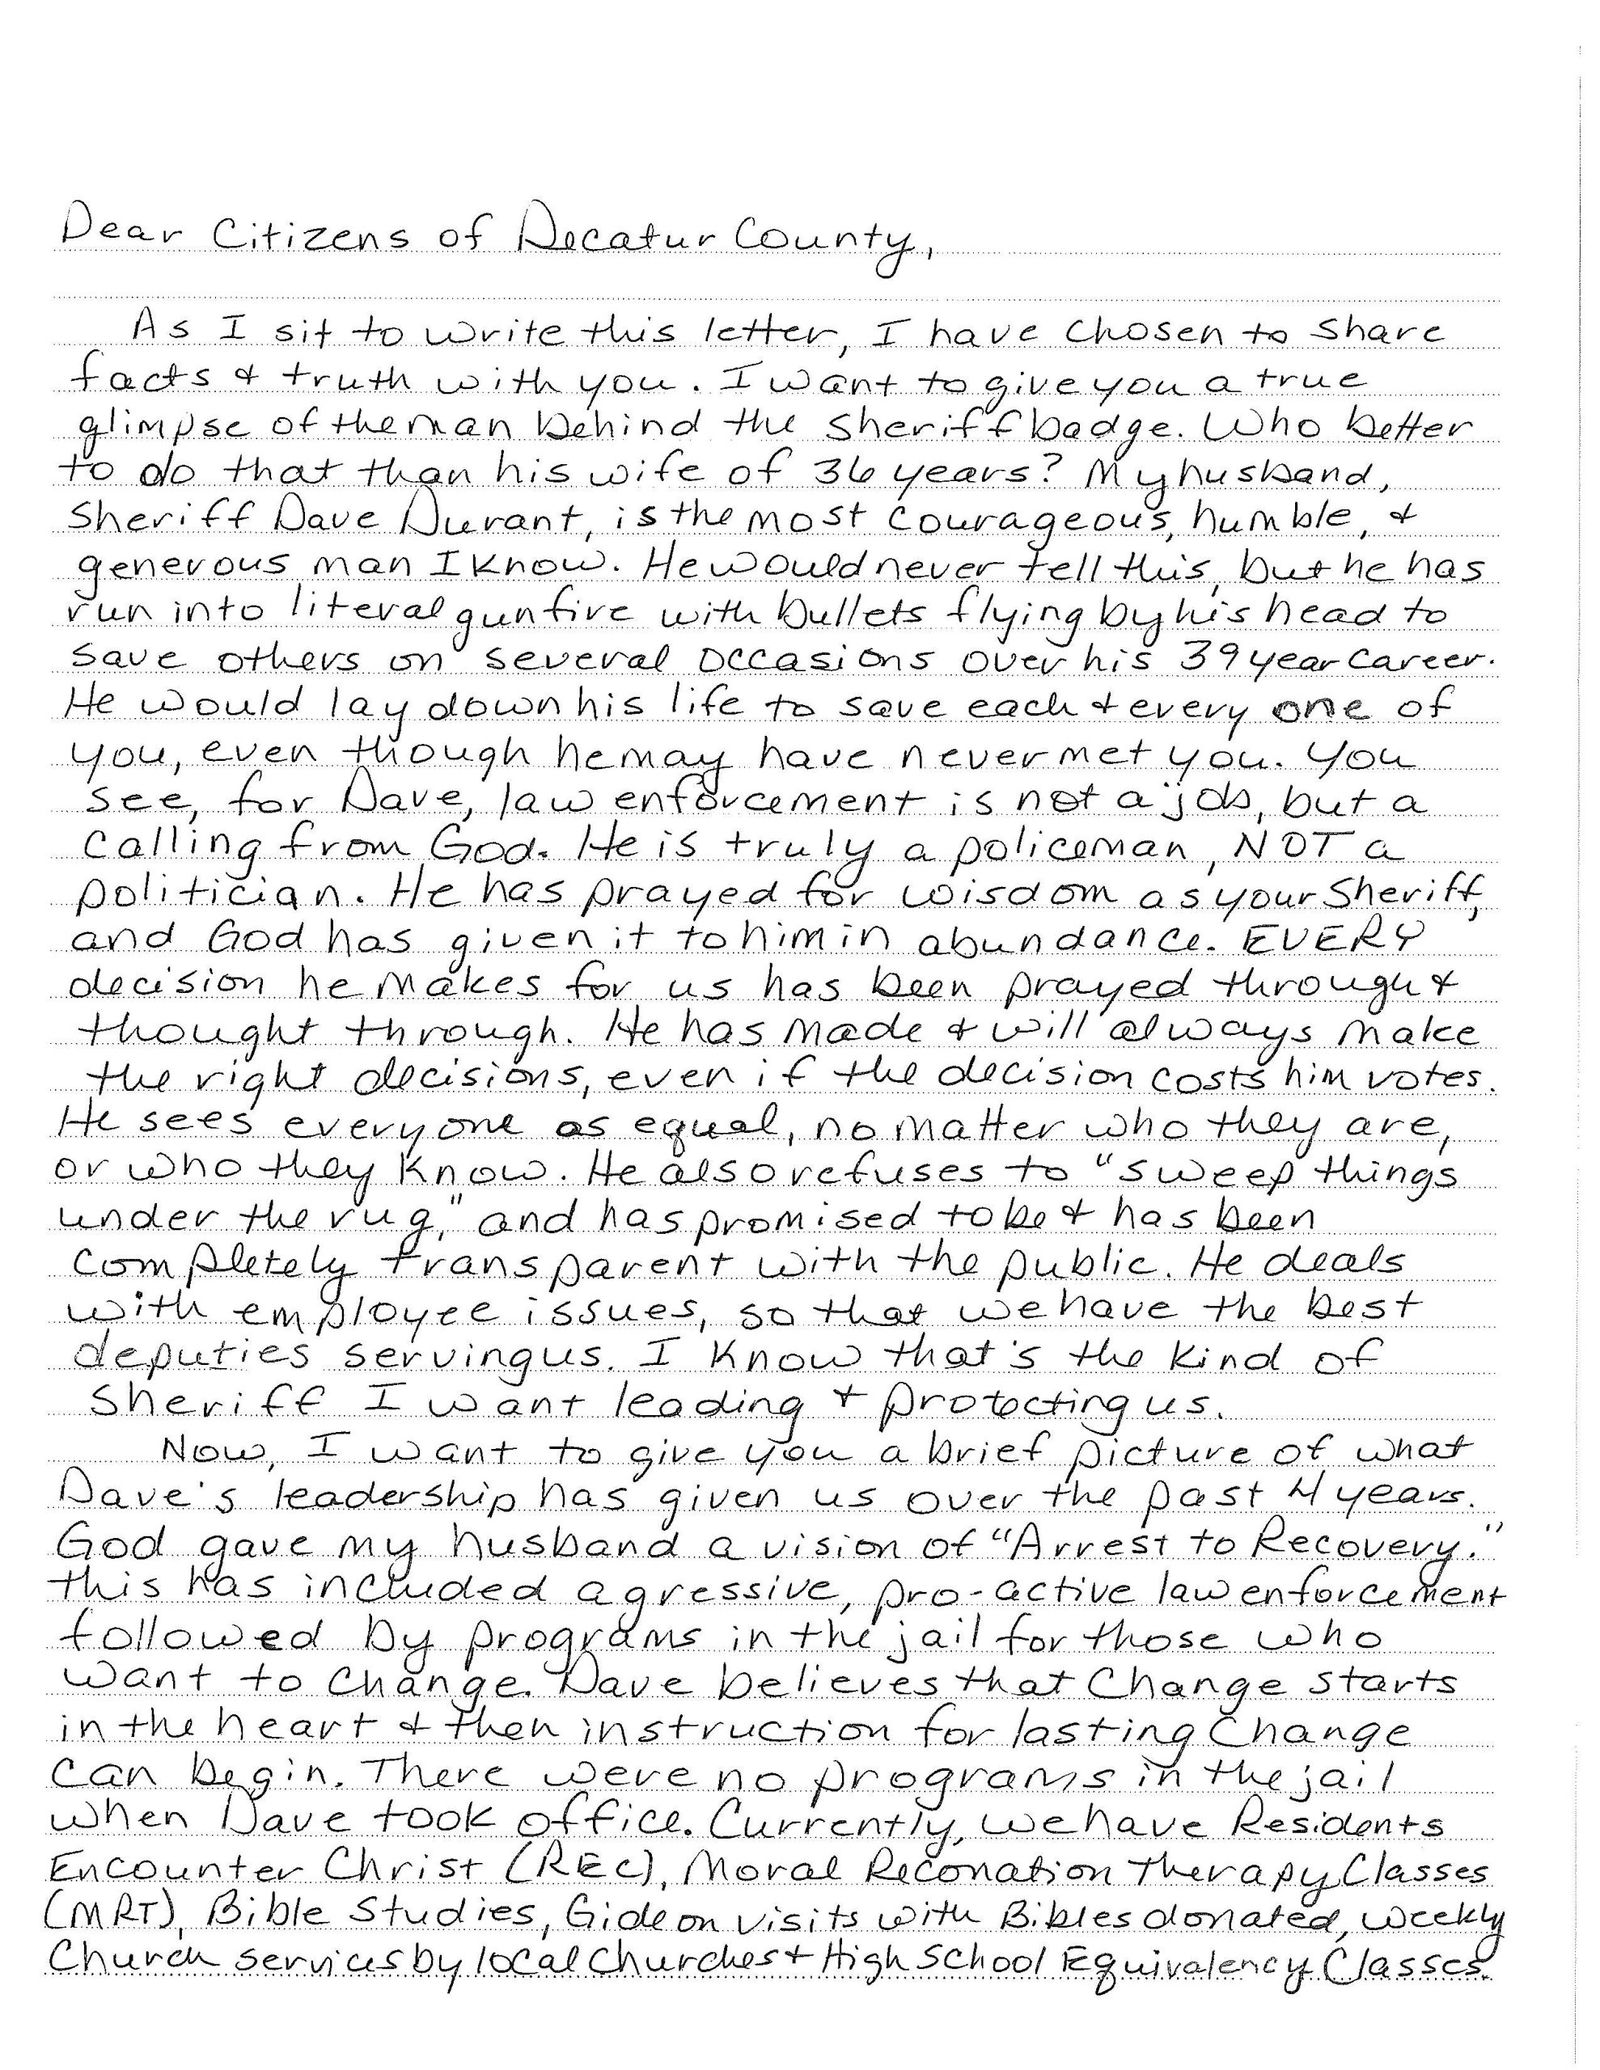 Dear Citizens of Decatur County,
As I sit to write this letter, I have chosen to share
facts & truth with you. I want to give you a true
glimpse of the man behind the sheriff badge. Who better
to do that than his wife of 36 years? My husband,
Sheriff Dave Durant, is the most courageous, humble, &
generous man I know. He would never tell this, but he has
run into literal gunfire with bullets flying by his head to
save others on several occasions over his 39 year career.
He would lay down his life to save each & every one of
you, even though he may have never met you. You
see, for Dave, law enforcement is not a job, but a
calling from God. He is truly a policeman, NOT a
politician. He has prayed for wisdom as your Sheriff,
and God has given it to him in abundance. EVERY
decision he makes for us has been prayed through &
thought through. He has made & will always make
the right decisions, even if the decision costs him votes.
He sees everyone as equal, no matter who they are,
or who they know. He also refuses to "sweep things
under the rug," and has promised to be & has been
completely transparent with the public. He deals
with employee issues, so that we have the best
deputies serving us. I know that's the kind of
sheriff I want leading & protecting us.
Now, I want to give you a brief picture of what
Dave's leadership has given us over the past 4 years.
God gave my husband a vision of "Arrest to Recovery."
This has included agressive, pro-active law enforcement
followed by programs in the jail for those who
want to change. Dave believes that change starts
in the heart & then instruction for lasting change
can begin. There were no programs in the jail
when Dave took office. Currently, we have Residents
Encounter Christ (REC), Moral Reconation Therapy Classes
(MRT), Bible Studies, Gideon visits with Bibles donated, weekly
Church services by local Churches & High School Equivalency Classes.